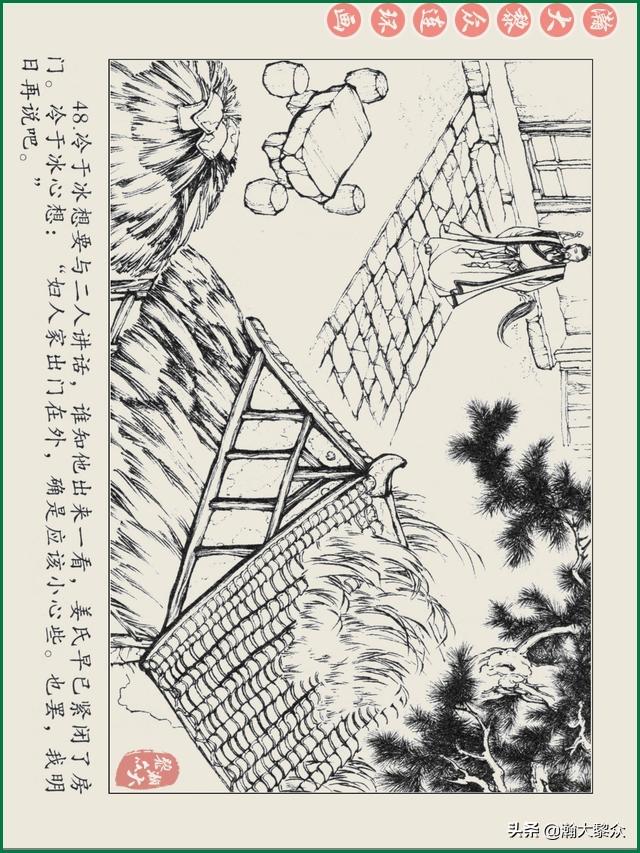 瀚大黎众连环画
48.冷于冰想要与二人讲话，谁知他出来一看，姜氏早已紧闭了房
门。冷于冰心想：“妇人家出门在外，确是应该小心些。也罢，我明
日再说吧。”
瀚大
黎众
头条 @瀚大黎众